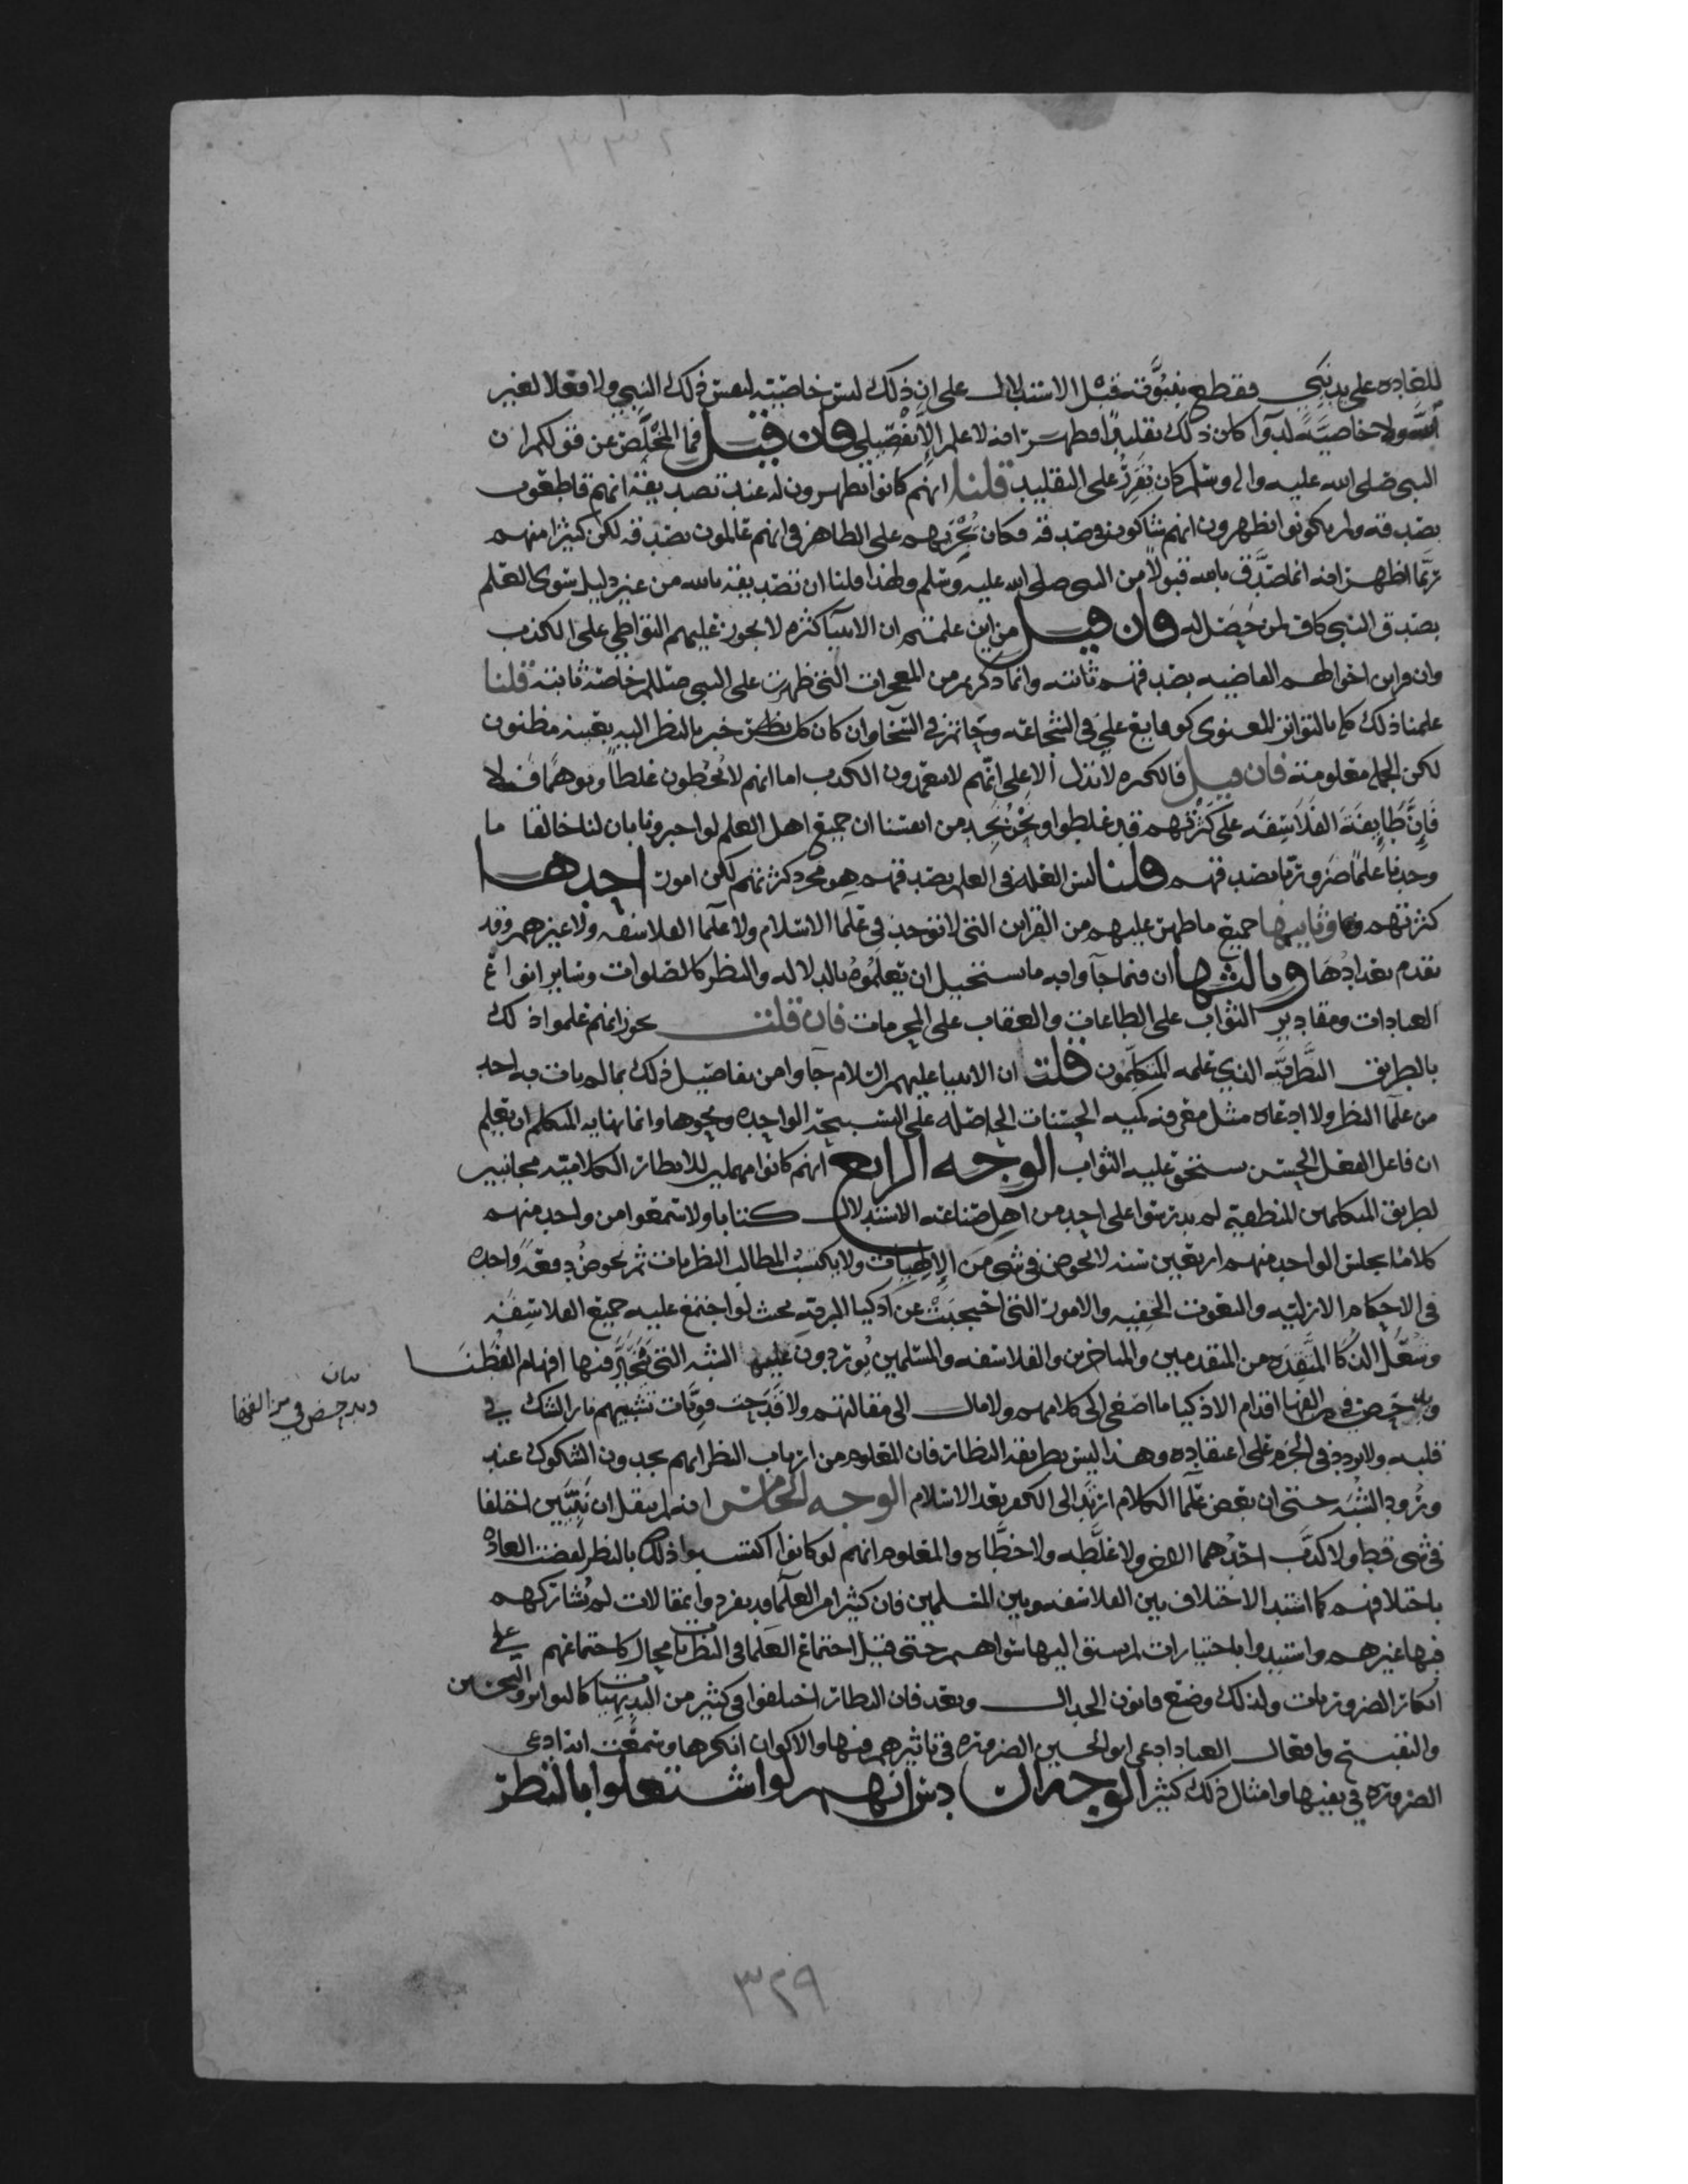 للعاده على يد نبي فقطع بنبوته قبل الاستدلال على ان ذلك ليس خاصية لنفس ذلك النبي ولا فعلا لغير
الله ولا خاصية لدوآ كان ذلك تقليدا فظهر انه لا علم الا تفصيلي فان قيل فما المخلص عن قولكم ان
النبي صلى الله عليه واله وسلم كان يقرر على التقليد قلنا انهم كانوا يظهرون له عند تصديقه انهم قاطعون
بصدقه ولم يكونوا يظهرون انهم شاكون في صدقه فكان يجريهم على الظاهر في انهم عالمون بصدقه لكن كثيرا منهم
ربما اظهر انه انما صدق بالله قبولا من النبي صلى الله عليه وسلم ولهذا قلنا ان تصديقه بالله من غير دليل سوى العلم
بصدق النبي كاف لمن حصل له فان قيل من اين علمتم ان الانبيا كثره لا يجوز عليهم التواطي على الكذب
وان قراين احوالهم القاضيه بصدقهم ثابته وانما ذكرتم من المعجزات التي ظهرت على النبي صللم خاصة ثابتة قلنا
علمنا ذلك كله بالتواتر المعنوي كوقايع علي في الشجاعه وحاتم في السخا وان كان كل خبر بالنظر اليه بعينه مظنون
لكن الجملة معلومة فان قيل فالكثره لا تدل الا على انهم لا يتعمدون الكذب اما انهم لا يخطون غلطا وتوهما فلا
فإن طايفة الفلاسفه على كثرتهم قد غلطوا ونحن نجد من انفسنا ان جميع اهل العلم لو اخبرونا بان لنا خالقا ما
وجدنا علما ضروريا بصدقهم قلنا ليس العله في العلم بصدقهم هو مجرد كثرتهم لكن امور احدها
كثرتهم وثانيها جميع ما ظهر عليهم من القراين التي لا توجد في علما الاسلام ولا علما الفلاسفه ولا غيرهم وقد
تقدم تعدادها وثالثها ان فيما جآوا به ما يستحيل ان يعلموه بالدلاله والنظر كالصلوات وساير انواع
العبادات ومقادير الثواب على الطاعات والعقاب على المحرمات فان قلت يجوز انهم علموا ذلك
بالطريق النظرية الذي علمه المتكلمون قلت ان الانبيا عليهم السلام جآوا من تفاصيل ذلك بما لم يات به احد
من علما النظر ولا ادعاه مثل معرفه كميه الحسنات الحاصله على التسبيحة الواحده ونحوها وانما نهايه المتكلم ان يعلم
ان فاعل الفعل الحسن يستحق عليه الثواب الوجه الرابع انهم كانوا مهملين للانظار الكلامية مجانبين
لطريق المتكلمين المنطقية لم يدرسوا على احد من اهل صناعه الاستدلال كتابا ولا سمعوا من واحد منهم
كلاما يجلس الواحد منهم اربعين سنه لا يخوض في شي من الإلهيات ولا يكتسب المطالب النظريات ثم يخوض دفعة واحده
في الاحكام الازلية والنعوت الخفيه والامور التي احتجبت عن اذكيا البرية بحيث لو اجتمع عليه جميع الفلاسفه
وشعل الذكا المتقده من المتقدمين والمتاخرين والفلاسفه والمسلمين يوردون عليه الشبه التي تتحير فيها افهام الفطنا
وتدحض في مزالقها اقدام الاذكيا ما اصغى الى كلامهم ولا مال الى مقالتهم ولا قدحت قويات شبههم نار الشك في
قلبه ولا تردد في الجزم على اعتقاده وهذا ليس بطريقه النظار فان المعلوم من ارباب النظر انهم يجدون الشكوك عند
ورود الشبه حتى ان بعض علما الكلام ارتد الى الكفر بعد الاسلام الوجه الخامس انه لم ينقل ان نبيين اختلفا
في شي قط ولا كذب احدهما الاخر ولا غلطه ولا خطاه والمعلوم انهم لو كانوا اكتسبوا ذلك بالنظر لقضت العاده
باختلافهم كما اشتد الاختلاف بين الفلاسفه وبين المسلمين فان كثيرا من العلما قد تفردوا بمقالات لم يشاركهم
فيها غيرهم واستبدوا باختيارات لم يسبق اليها سواهم حتى قيل اجتماع العلما في النظريات محال كاجتماعهم على
انكار الضروريات ولذلك وضع قانون الجدال وبعد فان النظار اختلفوا في كثير من البديهيات كالتواتر والتحسين
والتقبيح وافعال العباد ادعى ابو الحسين الضروره في تاثيرهم فيها والاكوان انكرها وسمعت انه ادعى
الضروره في نفيها وامثال ذلك كثير الوجه السادس انهم لو اشتغلوا بالنظر
بيان
وتدحض في مزالقها
٣٢٩